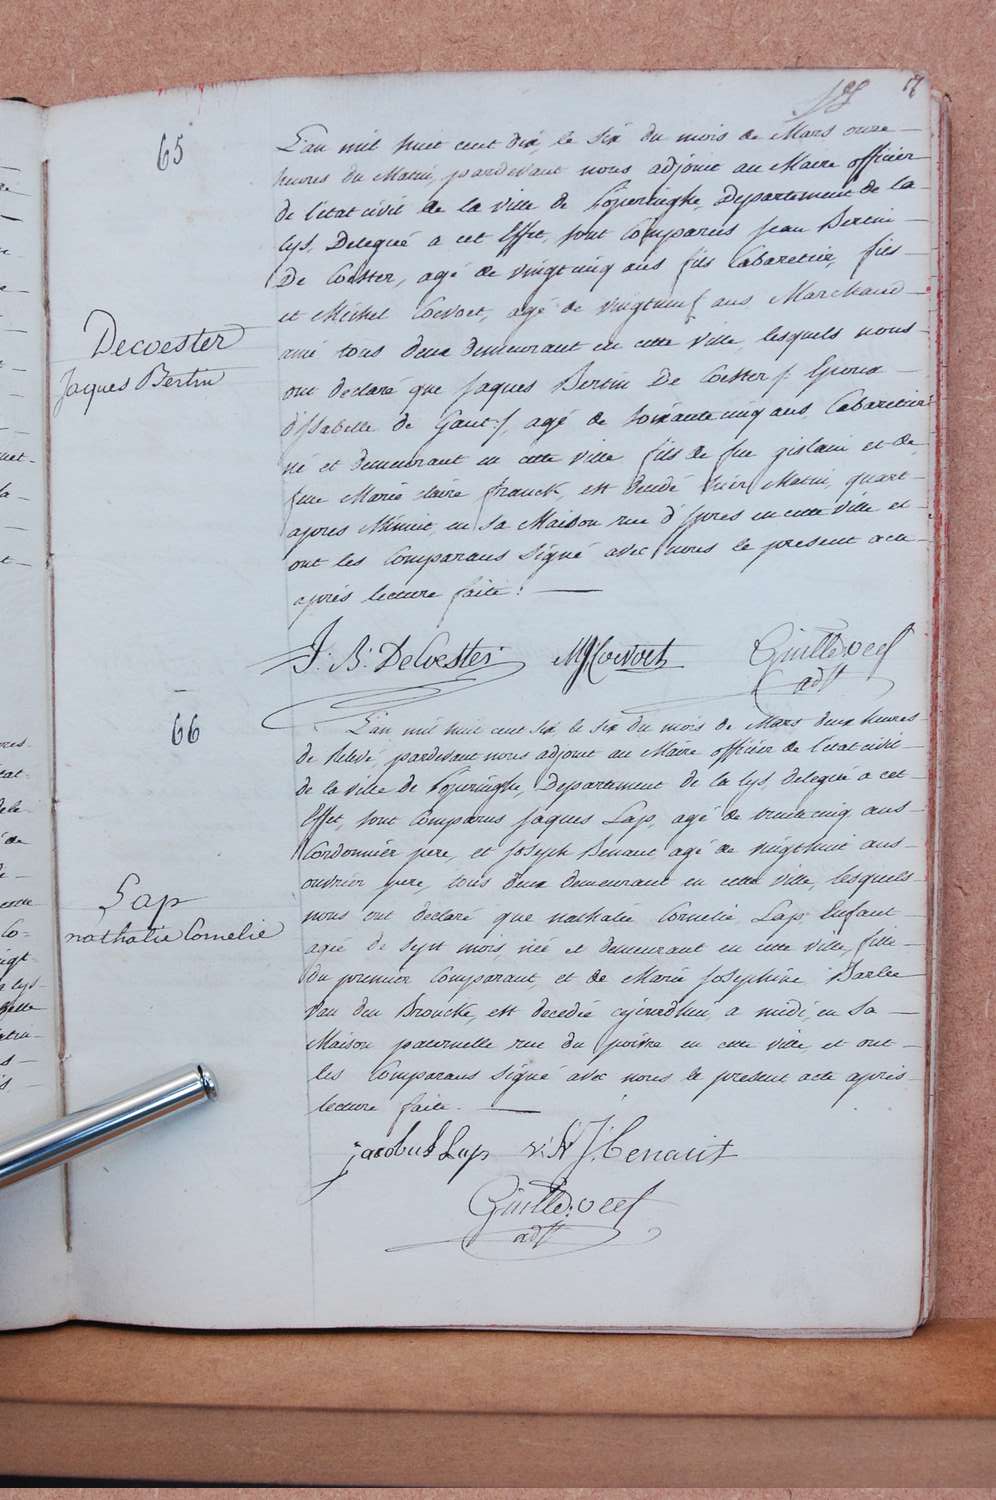 17
65
L'an mil huit cent dix, le six du mois de Mars onze
heures du Matin, pardevant nous adjoint au Maire officier
de l'état civil de la ville de Poperinghe, Departement de la
Lys, Delegué a cet Effet, sont Comparus Jean Bertin
De Coester, agé de vingtcinq ans fils Cabaretier, fils
et Michel Coevoet, agé de vingtneuf ans Marchand
ami tous deux demeurant en cette Ville, lesquels nous
Decoester
Jaques Bertin
ont declaré que Jaques Bertin De Coester
d'Isabelle de Gant, agé de soixante cinq ans Cabaretier
né et demeurant en cette ville fils de feu gislain et de
feue Marie Claire franck, est decedé hier Matin, quart
apres Minuit, en sa Maison rue d'Ypres en cette Ville et
ont les Comparans Signé avec nous le present acte
aprés lecture faite:
J. B. DeCoester M Coevoet
adjt
66
L'an mil huit cent dix le six du mois de Mars deux heures
de Relevé, pardevant nous adjoint au Maire officier de l'état civil
de la ville de Poperinghe, Departement de la Lys, delegué a cet
Effet, sont Comparus Jaques Lap, agé de trentecinq ans
Cordonnier pere, et Joseph Benaut, agé de vingthuit ans
ouvrier pere, tous deux demeurant en cette ville, lesquels
Lap
nathalie Cornelie
nous ont declaré que nathalie Cornelie Lap, Enfant
agée de sept mois, née et demeurant en cette ville, fille
du premier Comparant, et de Marie Josephine Barbe
Van den Broucke, est decedée cejourdhui, a midi, en sa
Maison paternelle rue du poivre en cette ville, et ont
les Comparans signé avec nous le present acte aprés
lecture faite.
jacobus Lap J. benaut
adjt